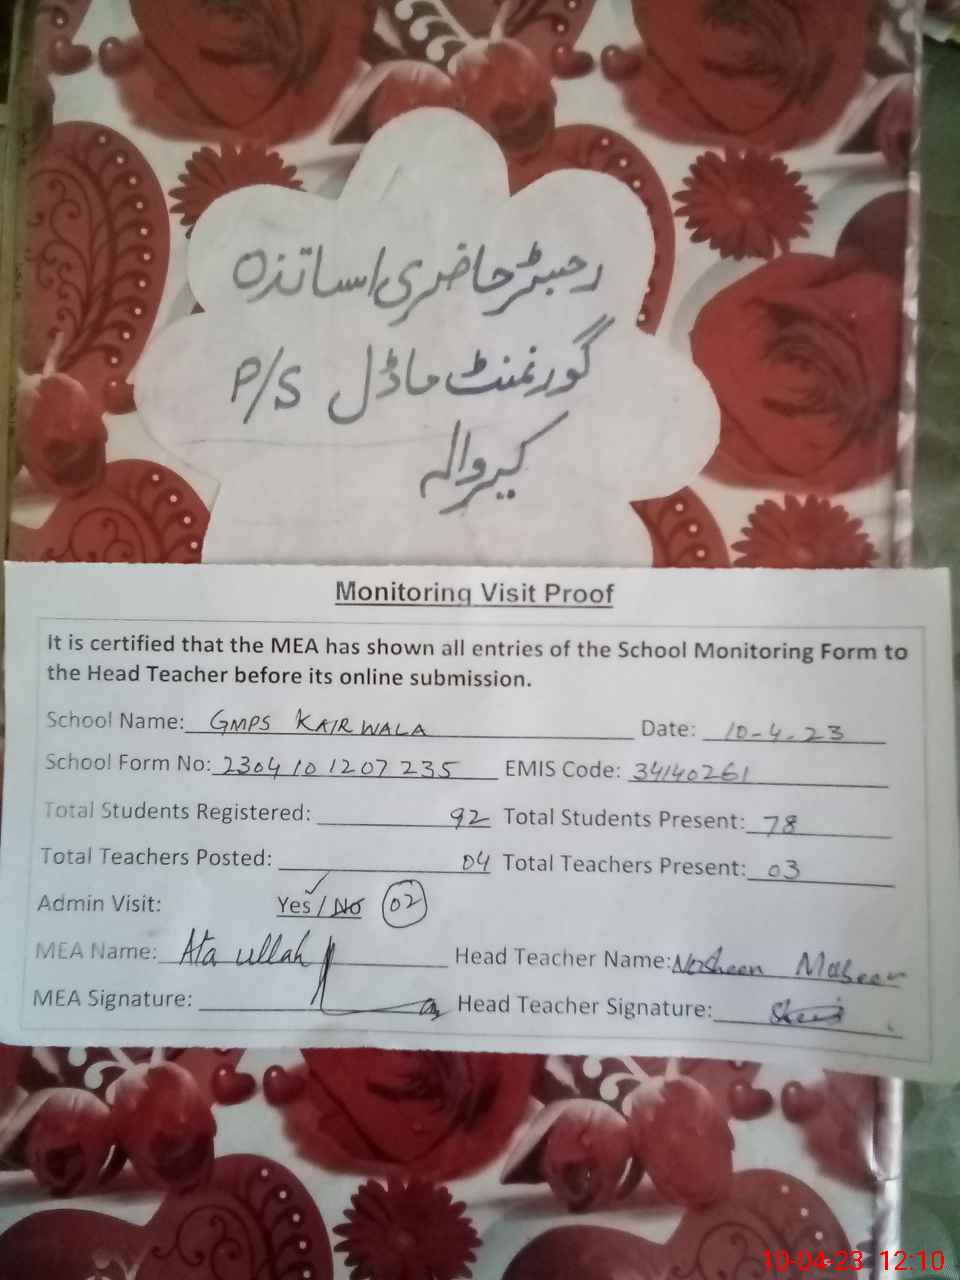 رجسٹر حاضری اساتذہ
گورنمنٹ ماڈل P/S
کیروالہ
Monitoring Visit Proof
It is certified that the MEA has shown all entries of the School Monitoring Form to
the Head Teacher before its online submission.
School Name: GMPS KAIRWALA Date: 10-4-23
School Form No: 2304101207235 EMIS Code: 34140261
Total Students Registered: 92 Total Students Present: 78
Total Teachers Posted: 04 Total Teachers Present: 03
Admin Visit: Yes / No 02
MEA Name: Ata ullah Head Teacher Name: Nosheen
MEA Signature: Head Teacher Signature:
10-04-23 12:10